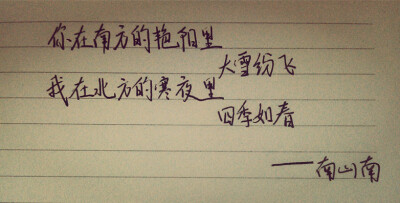 你在南方的艳阳里
大雪纷飞
我在北方的寒夜里
四季如春
——南山南